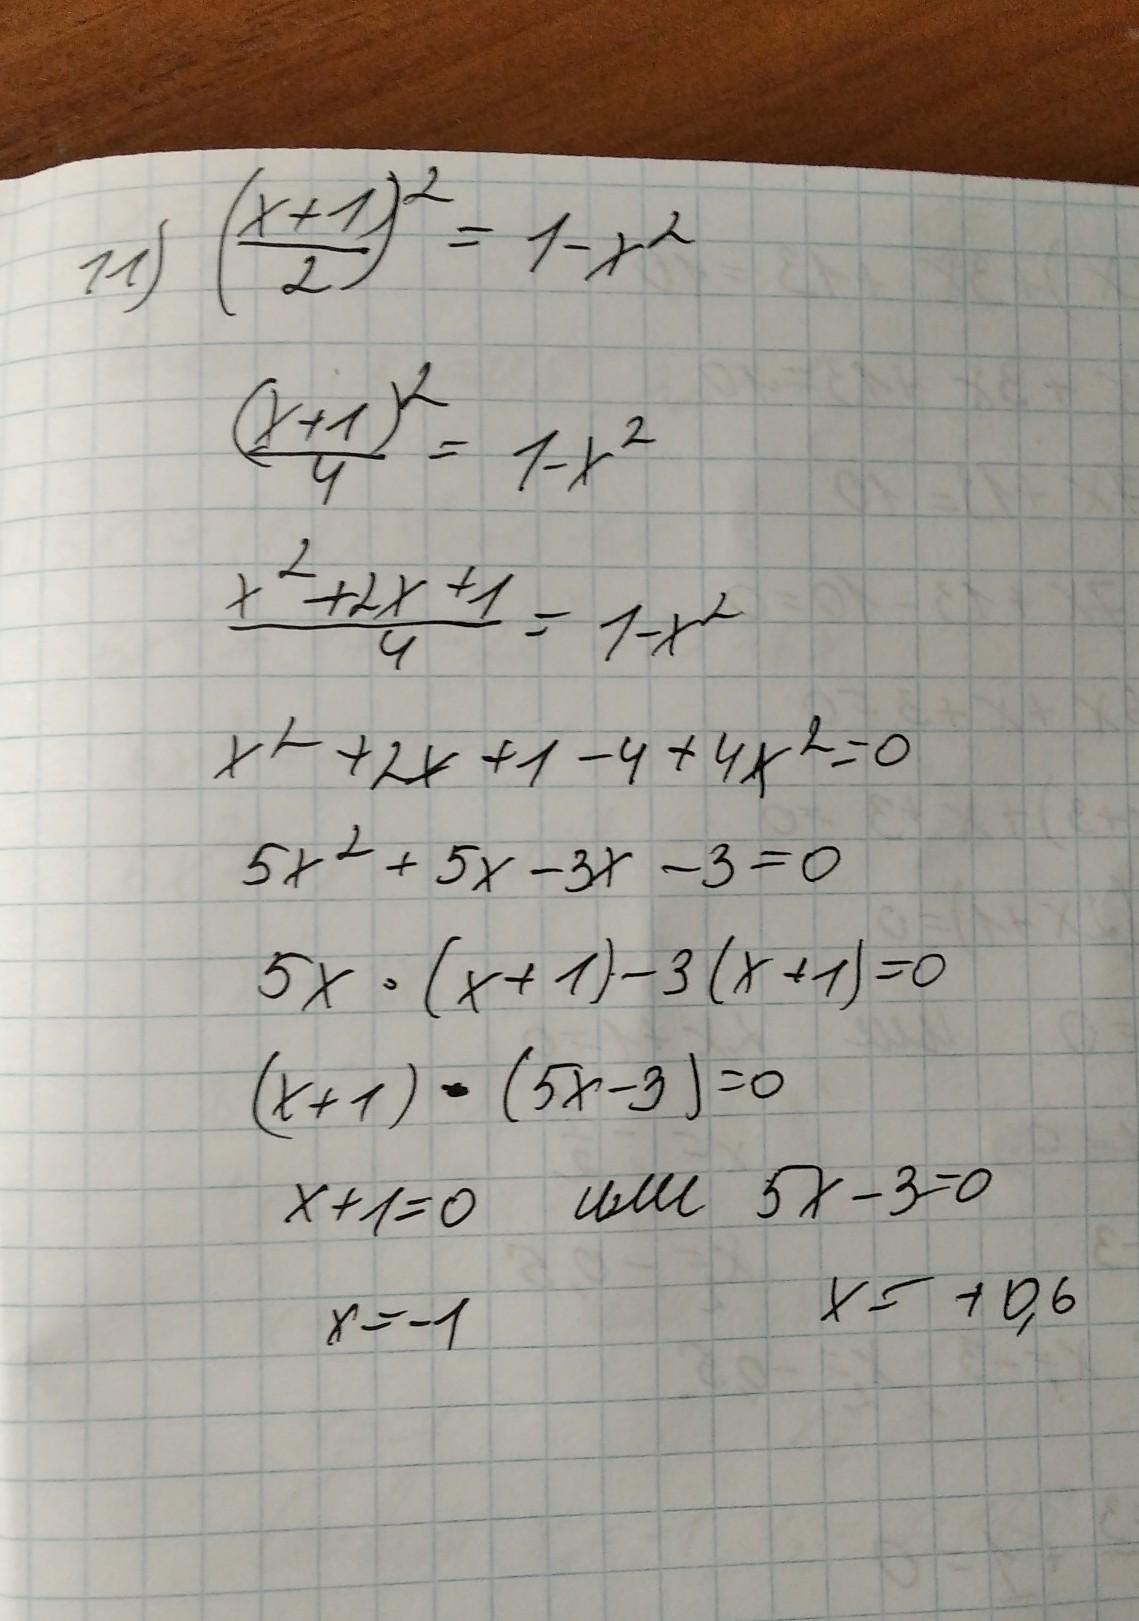 11) ((x+1)/2)² = 1-x²
(x+1)²/4 = 1-x²
(x²+2x+1)/4 = 1-x²
x²+2x+1-4+4x²=0
5x²+5x-3x-3=0
5x·(x+1)-3(x+1)=0
(x+1)·(5x-3)=0
x+1=0 или 5x-3=0
x=-1 x=+0,6